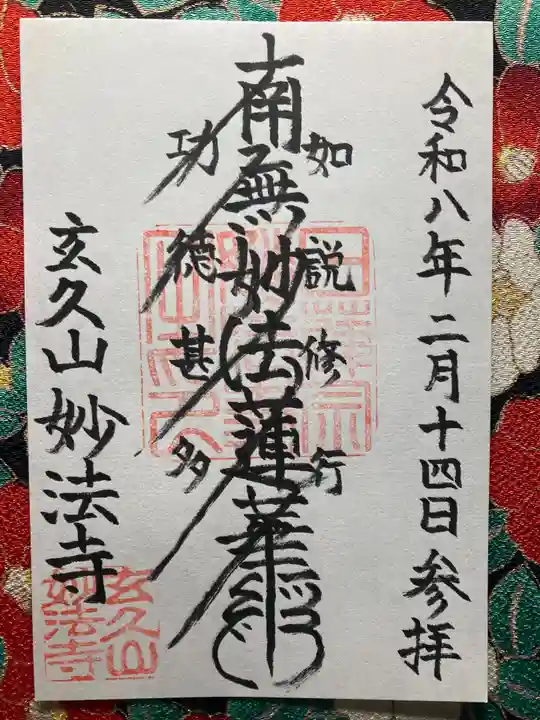 令和八年二月十四日参拝
如説修行
南無妙法蓮華経
功徳甚多
玄久山妙法寺
玄久山
妙法寺